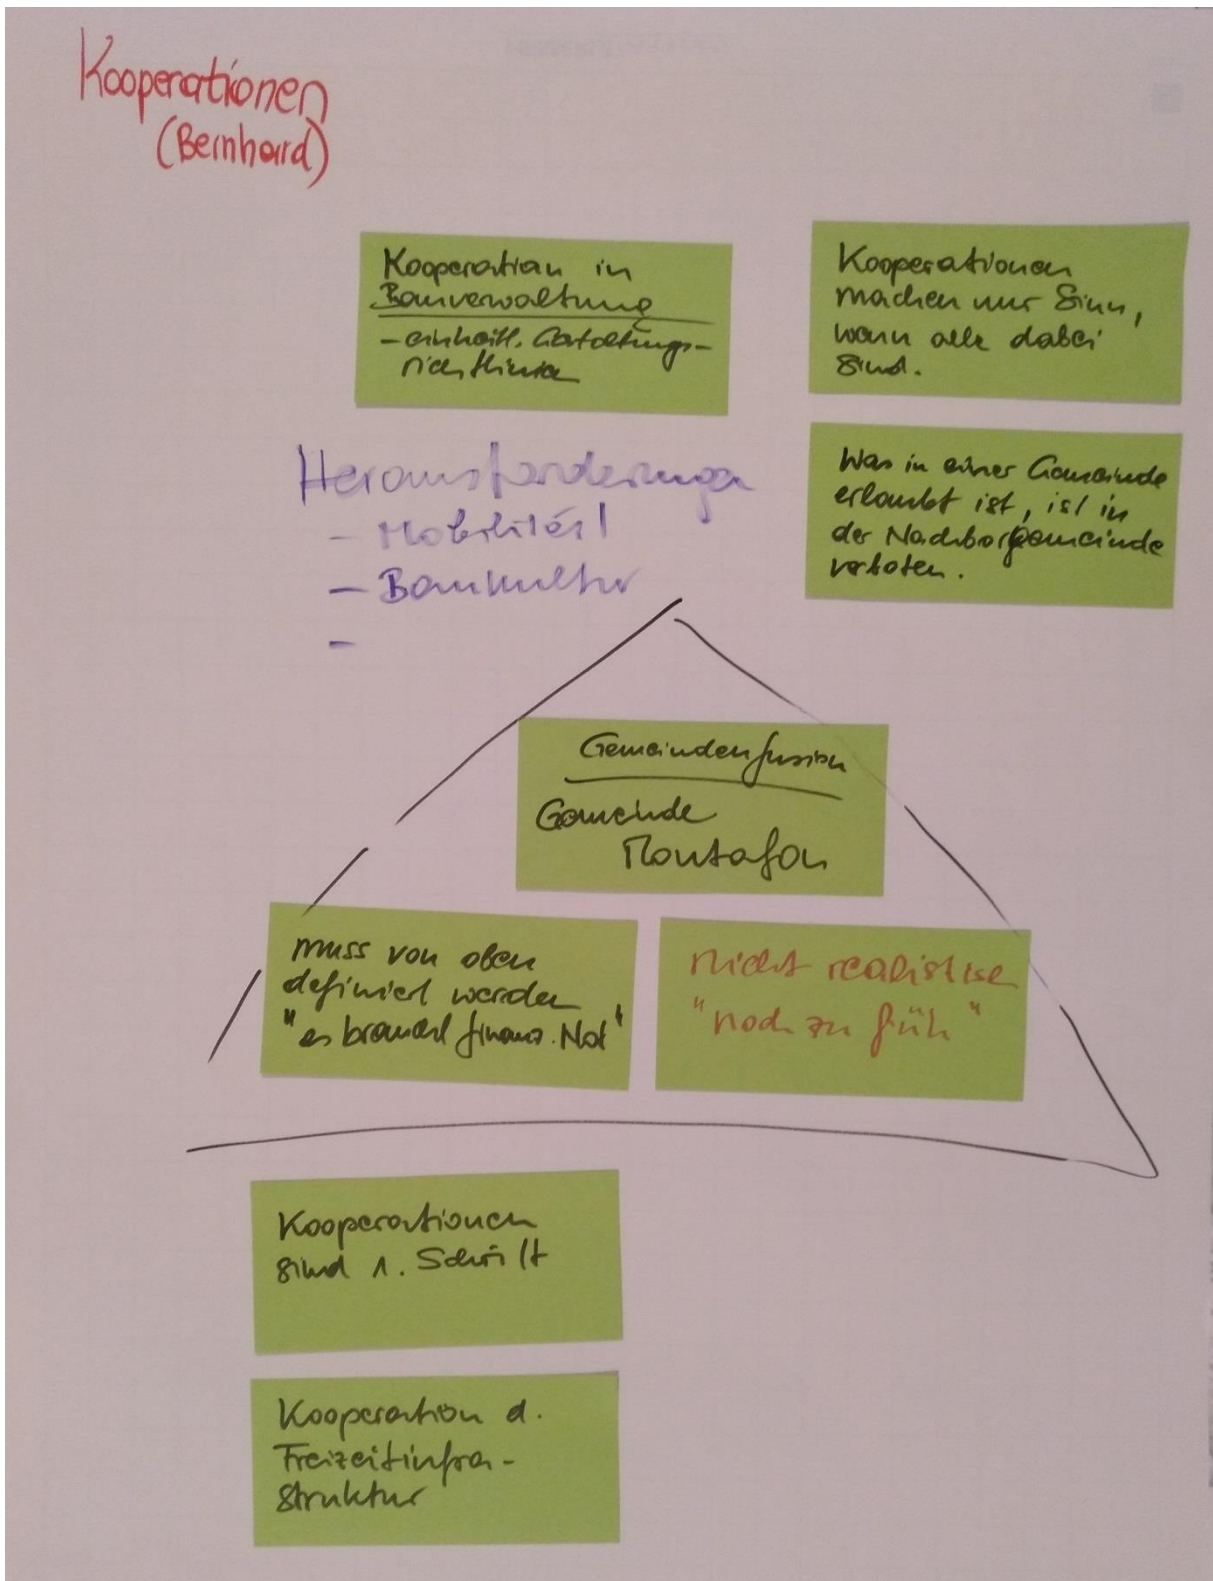 Kooperationen
(Bernhard)
Kooperation in
Bauverwaltung
- einheitl. Gestaltungs-
richtlinien
Kooperationen
machen nur Sinn,
wenn alle dabei
sind.
Herausforderungen
- Mobilität
- Baukultur
-
Was in einer Gemeinde
erlaubt ist, ist in
der Nachbargemeinde
verboten.
Gemeindenfusion
Gemeinde
Montafon
muss von oben
definiert werden
"es braucht finanz. Not"
nicht realistisch
"noch zu früh"
Kooperationen
sind 1. Schritt
Kooperation d.
Freizeitinfra-
struktur